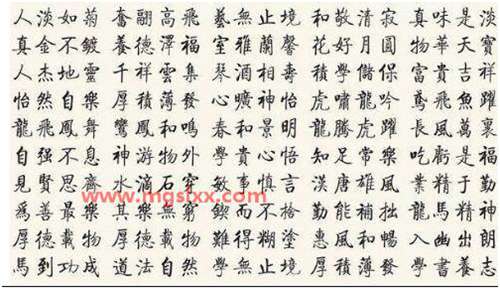 人淡如菊 奮翮高飛 藝無止境 和敬清寂 真味是淡
真金不鍍 養德澤福 室雅蘭馨 花好月圓 物華天寶
人杰地靈 千祥雲集 琴酒相壽 學儲 富貴吉祥
怡然自樂 厚積薄發 心曠神怡 虎嘯龍吟 鳶飛魚躍
龍飛鳳舞 鸞鳳和鳴 春和景明 龍騰虎躍 長風萬里
自强不息 神游物外 學貴心悟 知足常樂 吃虧是福
見賢思齊 水滴石穿 敏事慎言 漢唐雄風 業精于勤
爲善最樂 其樂無窮 鍥而不 勤能補拙 龍馬精神
厚德載物 厚德載物 難得糊塗 惠風和暢 入幽出朗
馬到功成 道法自然 學無止境 厚積薄發 學書養志
www.mgslxx.com